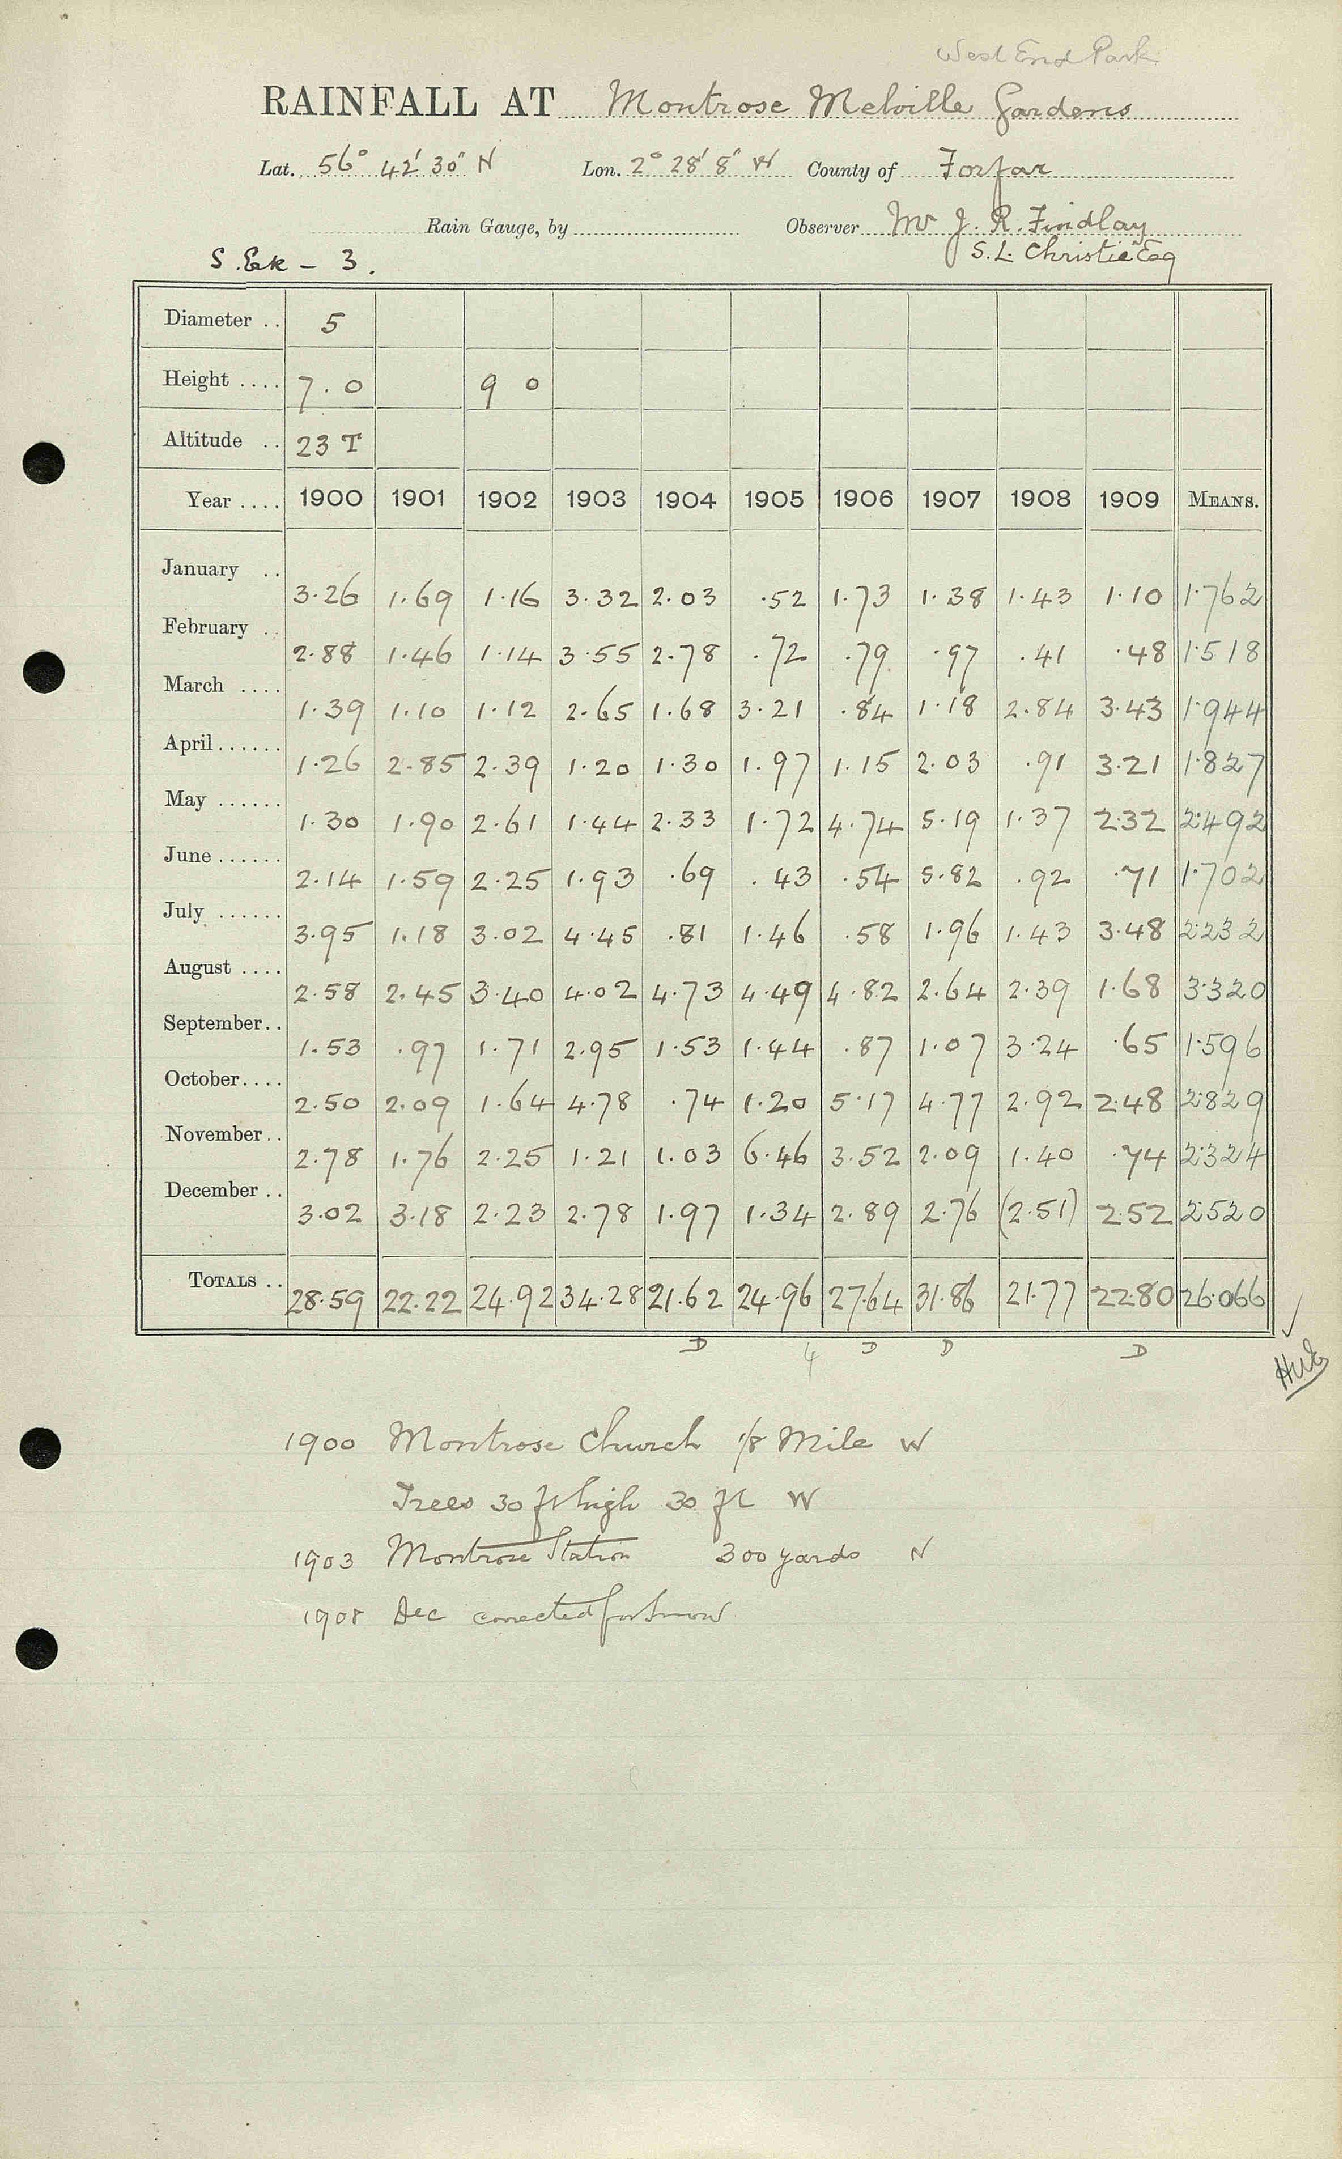 West End Park
RAINFALL AT Montrose Melville Gardens
Lat. 56° 42' 30" N Lon. 2° 28' 8" W County of Forfar
Rain Gauge, by Observer Mr J. R. Findlay
S. Esk - 3. S. L. Christie Esq
Diameter .. 5
Height .... 7.0 9 0
Altitude .. 23 T
Year .... 1900 1901 1902 1903 1904 1905 1906 1907 1908 1909 MEANS.
January .. 3.26 1.69 1.16 3.32 2.03 .52 1.73 1.38 1.43 1.10 1.762
February .. 2.88 1.46 1.14 3.55 2.78 .72 .79 .97 .41 .48 1.518
March .... 1.39 1.10 1.12 2.65 1.68 3.21 .84 1.18 2.84 3.43 1.944
April ...... 1.26 2.85 2.39 1.20 1.30 1.97 1.15 2.03 .91 3.21 1.827
May ...... 1.30 1.90 2.61 1.44 2.33 1.72 4.74 5.19 1.37 2.32 2.492
June ...... 2.14 1.59 2.25 1.93 .69 .43 .54 5.82 .92 .71 1.702
July ...... 3.95 1.18 3.02 4.45 .81 1.46 .58 1.96 1.43 3.48 2.232
August .... 2.58 2.45 3.40 4.02 4.73 4.49 4.82 2.64 2.39 1.68 3.320
September .. 1.53 .97 1.71 2.95 1.53 1.44 .87 1.07 3.24 .65 1.596
October .... 2.50 2.09 1.64 4.78 .74 1.20 5.17 4.77 2.92 2.48 2.829
November .. 2.78 1.76 2.25 1.21 1.03 6.46 3.52 2.09 1.40 .74 2.324
December .. 3.02 3.18 2.23 2.78 1.97 1.34 2.89 2.76 (2.51) 2.52 2.520
TOTALS .. 28.59 22.22 24.92 34.28 21.62 24.96 27.64 31.86 21.77 22.80 26.066
D 4 D D D
1900 Montrose Church 1/8 Mile W
Trees 30 ft high 30 ft W
1903 Montrose Station 300 yards N
1908 Dec corrected for Snow